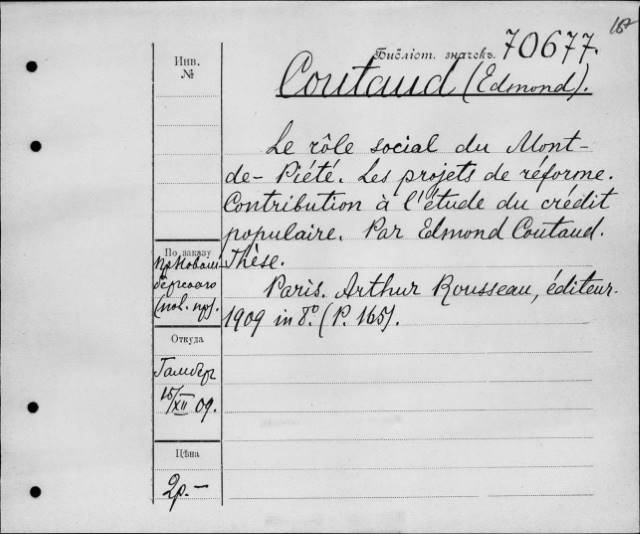 Библіот. значекъ 70677.
Coutaud (Edmond).
Le rôle social du Mont-
de-Piété. Les projets de réforme.
Contribution à l'étude du crédit
populaire. Par Edmond Coutaud.
Thèse.
Paris. Arthur Rousseau, éditeur.
1909 in 8º. (P. 165).
Инв.
№
По заказу
(пол. пр).
Откуда
Гамбер
15/XII 09.
Цѣна
2р.-